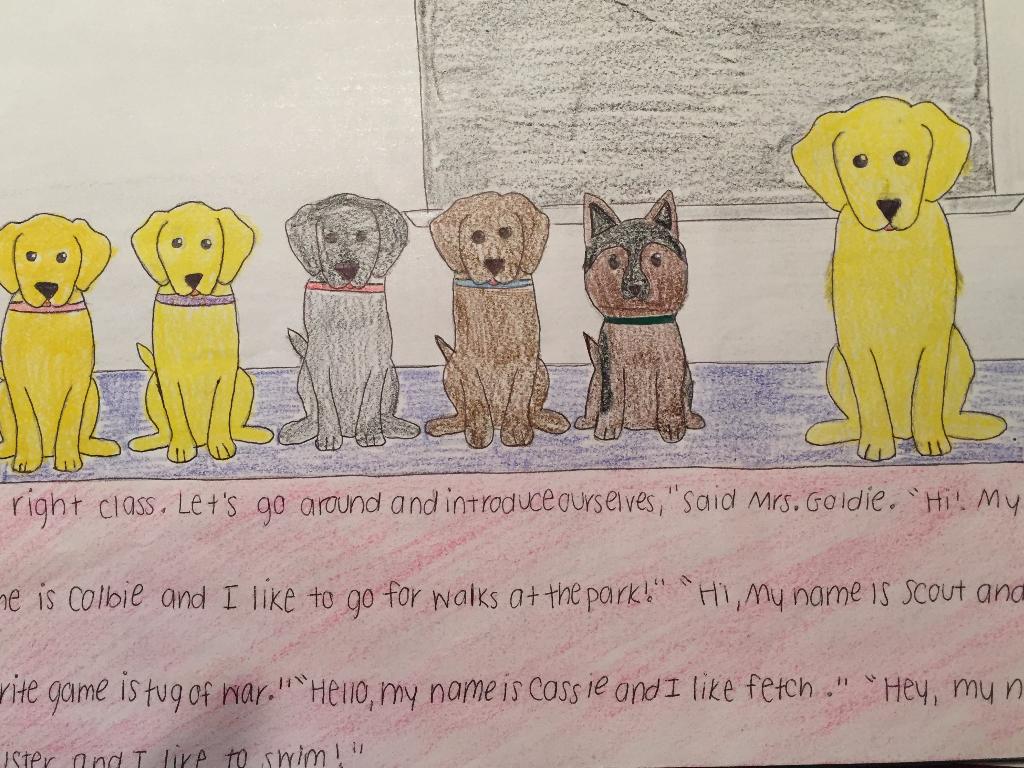 right class. Let's go around and introduce ourselves," said Mrs. Goldie. "Hi! My
is Colbie and I like to go for walks at the park!" "Hi, My name is Scout and
game is tug of war." "Hello, my name is Cassie and I like fetch." "Hey, my
and I like to swim!"